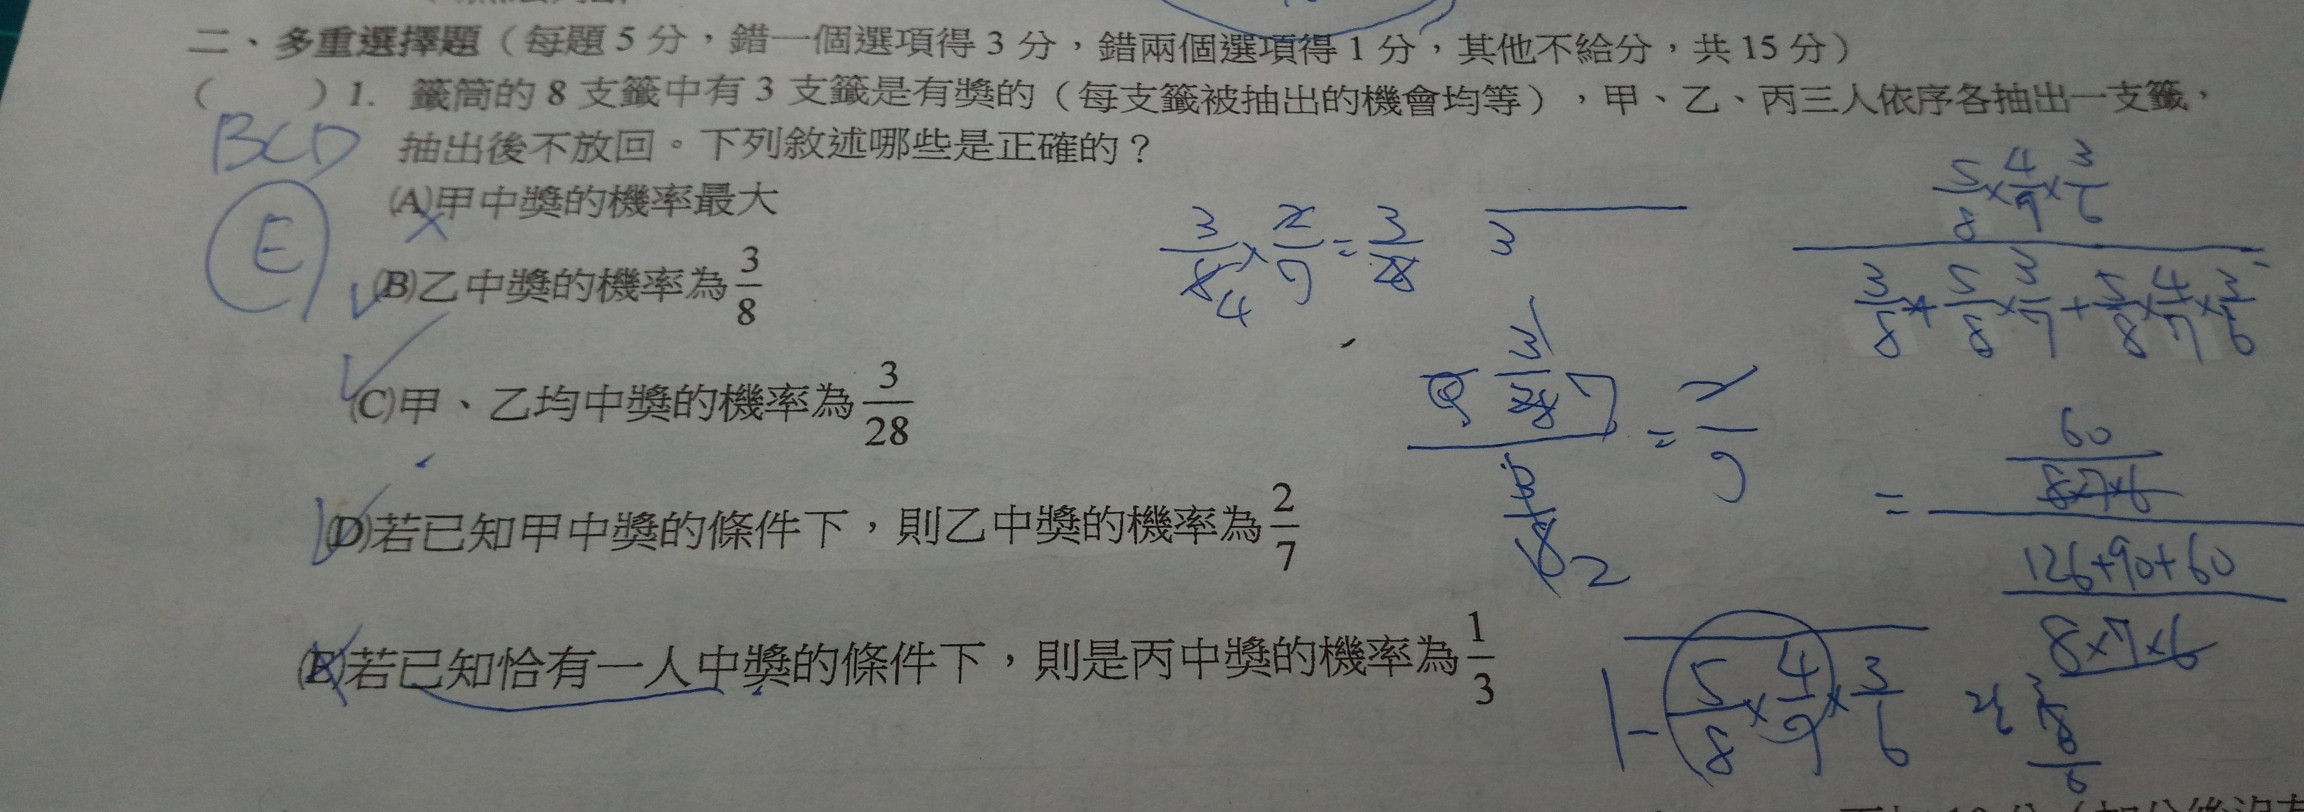 二、多重選擇題（每題 5 分，錯一個選項得 3 分，錯兩個選項得 1 分，其他不給分，共 15 分）
（　　）1. 籤筒的 8 支籤中有 3 支籤是有獎的（每支籤被抽出的機會均等），甲、乙、丙三人依序各抽出一支籤，
抽出後不放回。下列敘述哪些是正確的？
BCD
E
(A)甲中獎的機率最大
(B)乙中獎的機率為 3/8
(C)甲、乙均中獎的機率為 3/28
(D)若已知甲中獎的條件下，則乙中獎的機率為 2/7
(E)若已知恰有一人中獎的條件下，則是丙中獎的機率為 1/3
3/8 × 2/7 = 3/28
3
5/8 × 4/7 × 3/6
3/8 + 5/8 × 3/7 + 5/8 × 4/7 × 3/6
= 2/7
= 60/8×7×6
126+90+60
8×7×6
1 - 5/8 × 4/7 × 3/6